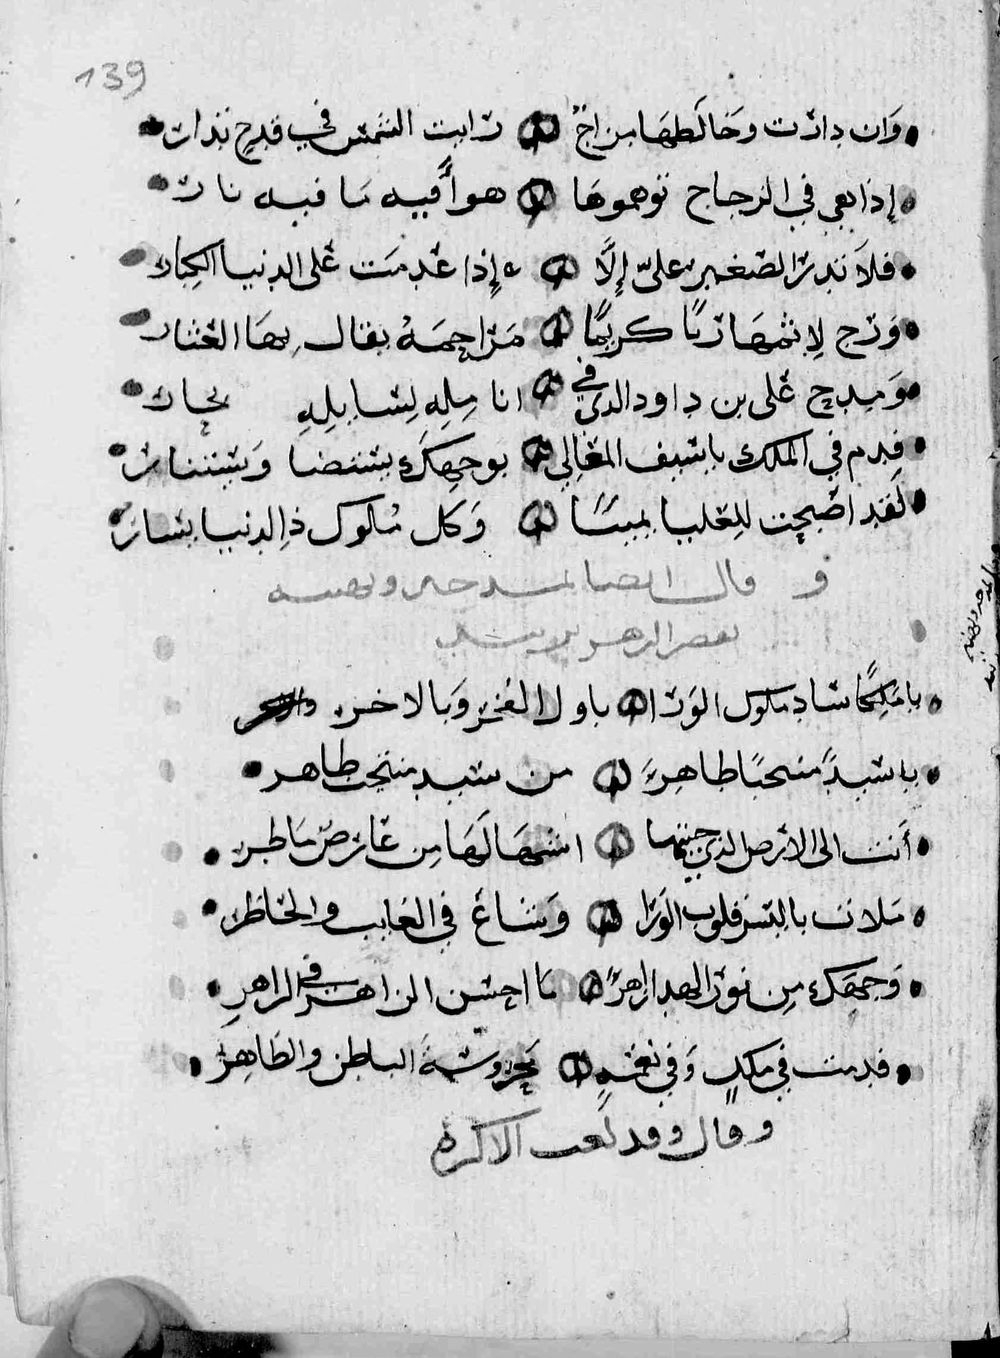 139
وَان دارت وخالطها مزاج رايت الشمس في قدح تدار
إذا بقي في الزجاج توهموها هواً فيه ما فيه نار
فلا تدر الصغير علىّ إلّا إذا عدمت على الدنيا الكبار
وَرح لاثمها ربًا كريمًا مَزاحمة يقال بها العثار
وَمدح على بن داود الدى في انامله لسايله بحار
فدم في الملك ياسيف المعالي بوجهك يستضا ويستنار
لقد اصبحت للعليا يمينًا وَكل ملوك ذا الدنيا يسار
و قال ايضا يمدحه ويهنيه
بعصر الزهر
يا مَلِكًا ساد ملوك الورا باول الفخر وَبالاخر
يا سيدً منتخبًا طاهرً من سيد منتخب طاهر
أنت الى الارض الذي جيتها اشهَا لَهَا من عَارض مَاطر
مَلات بالبشر قلوب الورا وَشاع في الغايب والحاظر
وَجهك من نور الهدا زاهرً مَا احسن الزاهر في الزاهر
فدمت في ملكٍ وَفي نعمةٍ محروسة الباطن والظاهر
وقال وقد لعب الاكرة